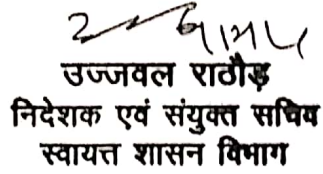 उज्जवल राठौड़
निदेशक एवं संयुक्त सचिव
स्वायत्त शासन विभाग